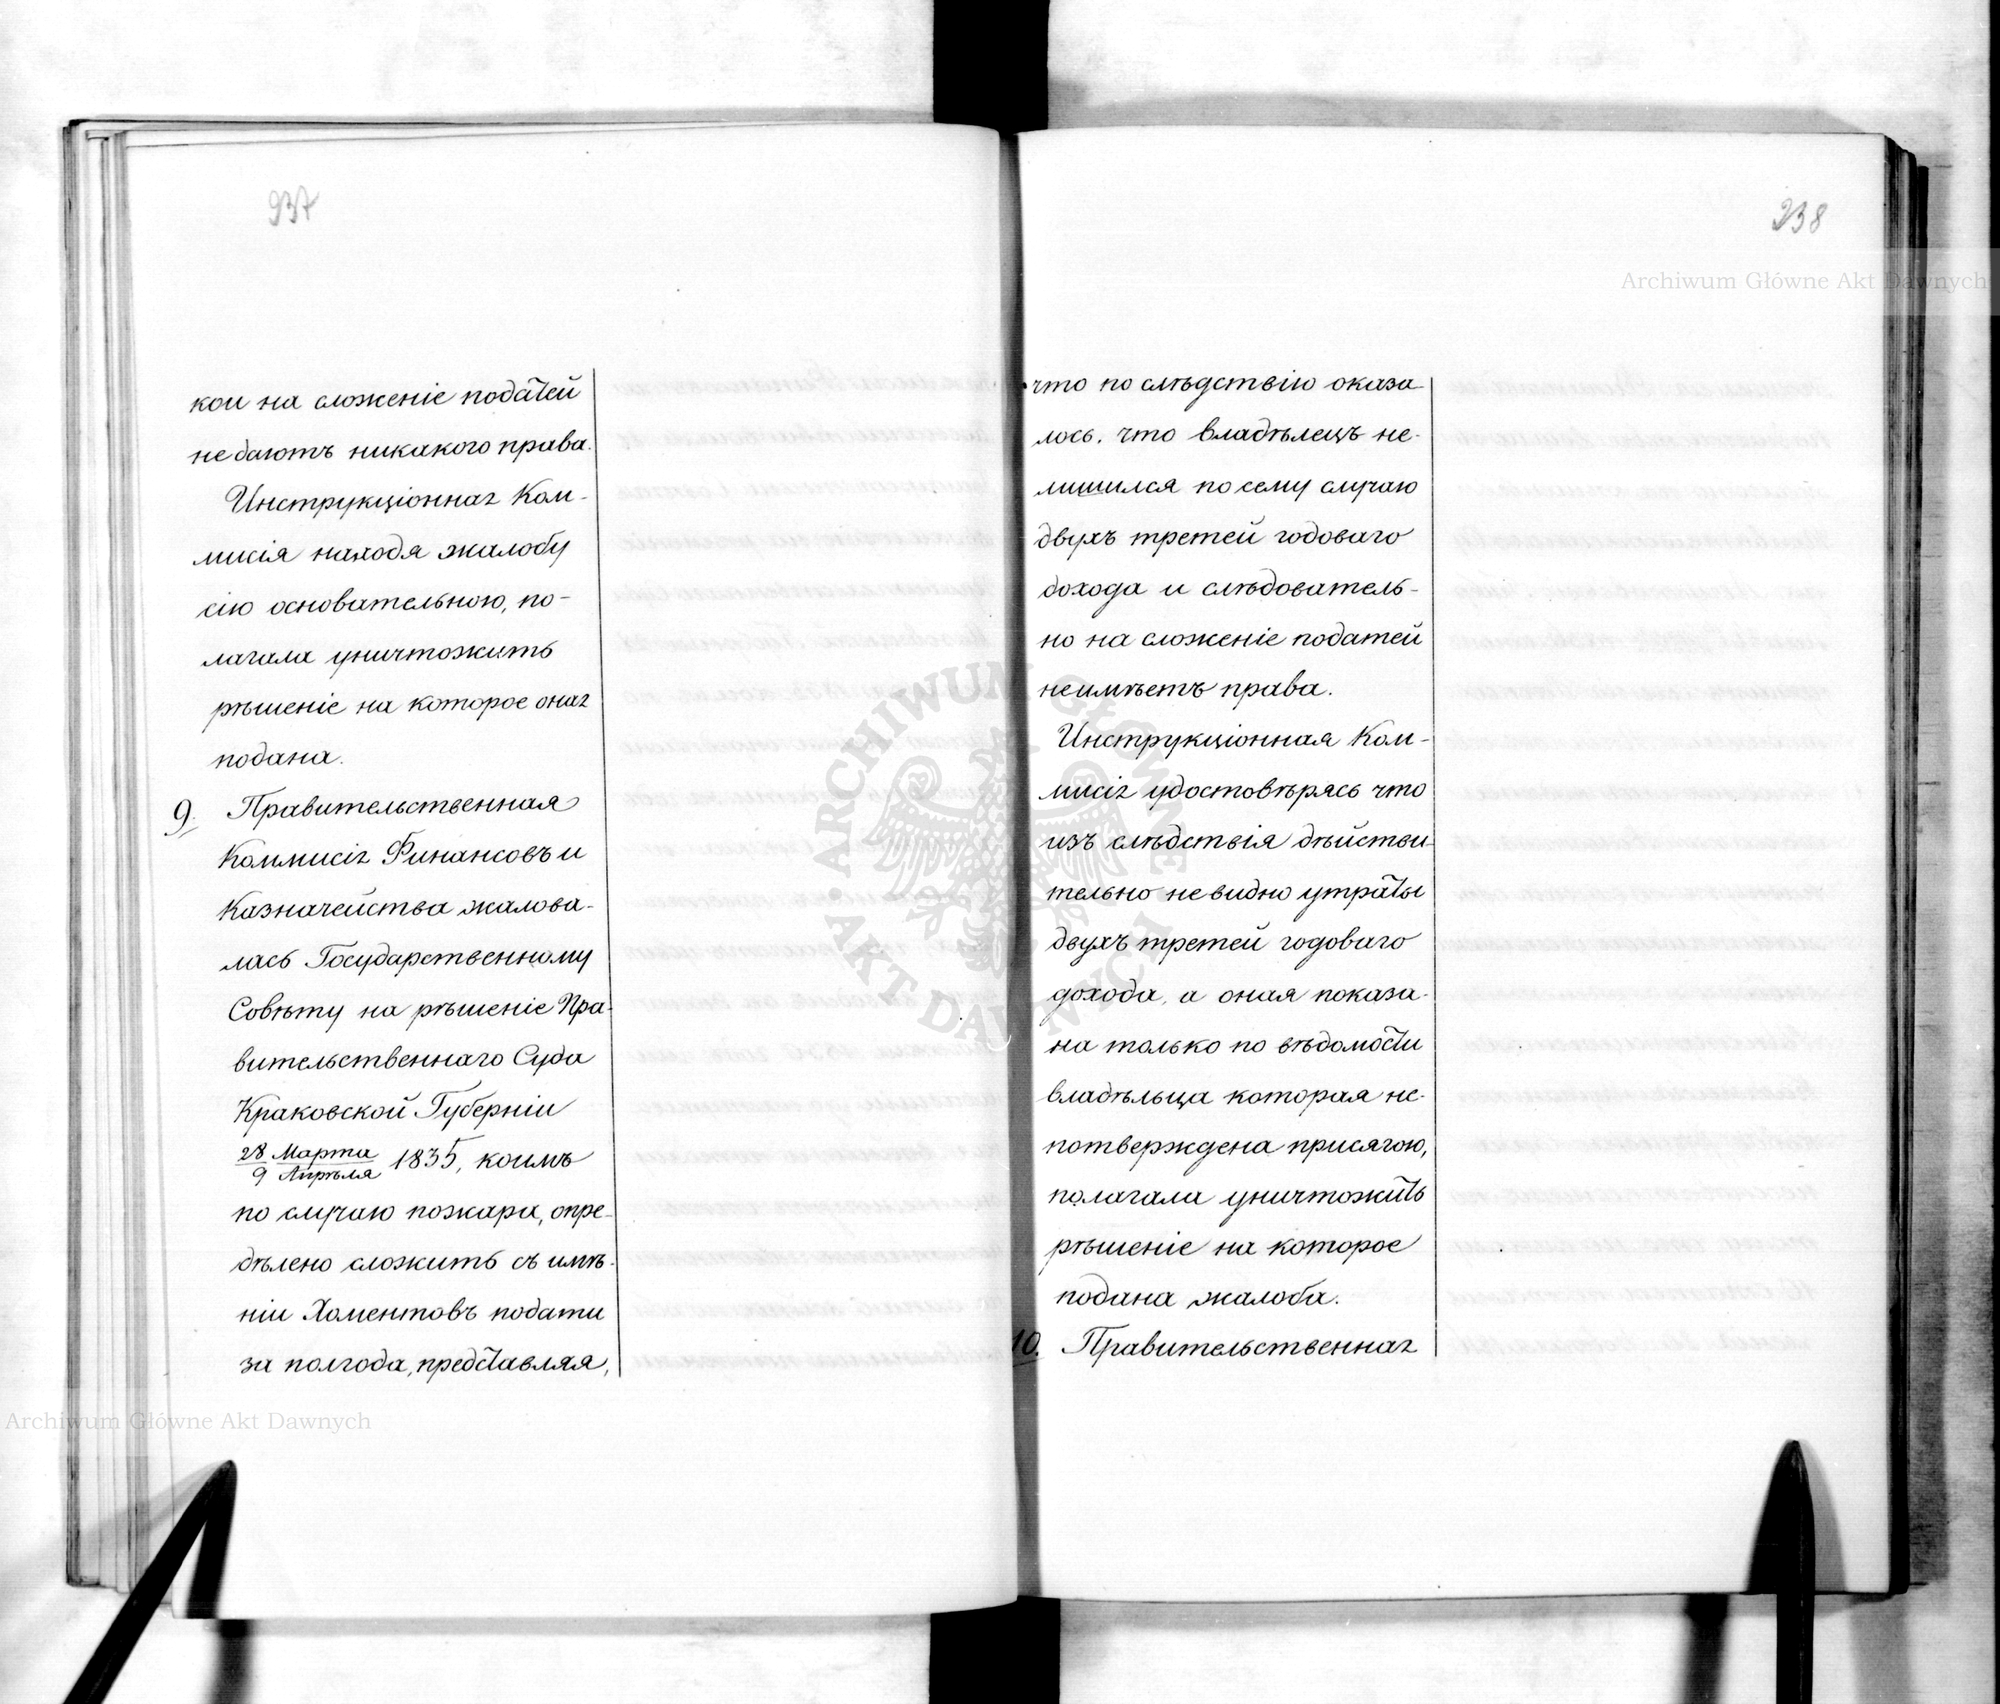 937
кои на сложеніе податей
не даютъ никакого права.
Инструкціонная Ком-
мисія находя жалобу
сію основательною, по-
лагала уничтожить
рѣшеніе на которое оная
подана.
9. Правительственная
Коммисія Финансовъ и
Казначейства жалова-
лась Государственному
Совѣту на рѣшеніе Пра-
вительственнаго Суда
Краковской Губерніи
28 Марта
9 Апрѣля 1835, коимъ
по случаю пожара, опре-
дѣлено сложить съ имѣ-
ніи Хоментовъ подати
за полгода, представляя,
938
что по слѣдствію оказа-
лось, что владѣлецъ не-
лишился по сему случаю
двухъ третей годоваго
дохода и слѣдователь-
но на сложеніе податей
неимѣетъ права.
Инструкціонная Ком-
мисія удостовѣрясь что
изъ слѣдствія дѣйстви-
тельно не видно утраты
двухъ третей годоваго
дохода, а оная показа-
на только по вѣдомости
владѣльца которая не-
потверждена присягою,
полагала уничтожить
рѣшеніе на которое
подана жалоба.
10. Правительственная
Archiwum Główne Akt Dawnych
Archiwum Główne Akt Dawnych
ARCHIWUM GŁÓWNE AKT DAWNYCH · AKT DAWNYCH